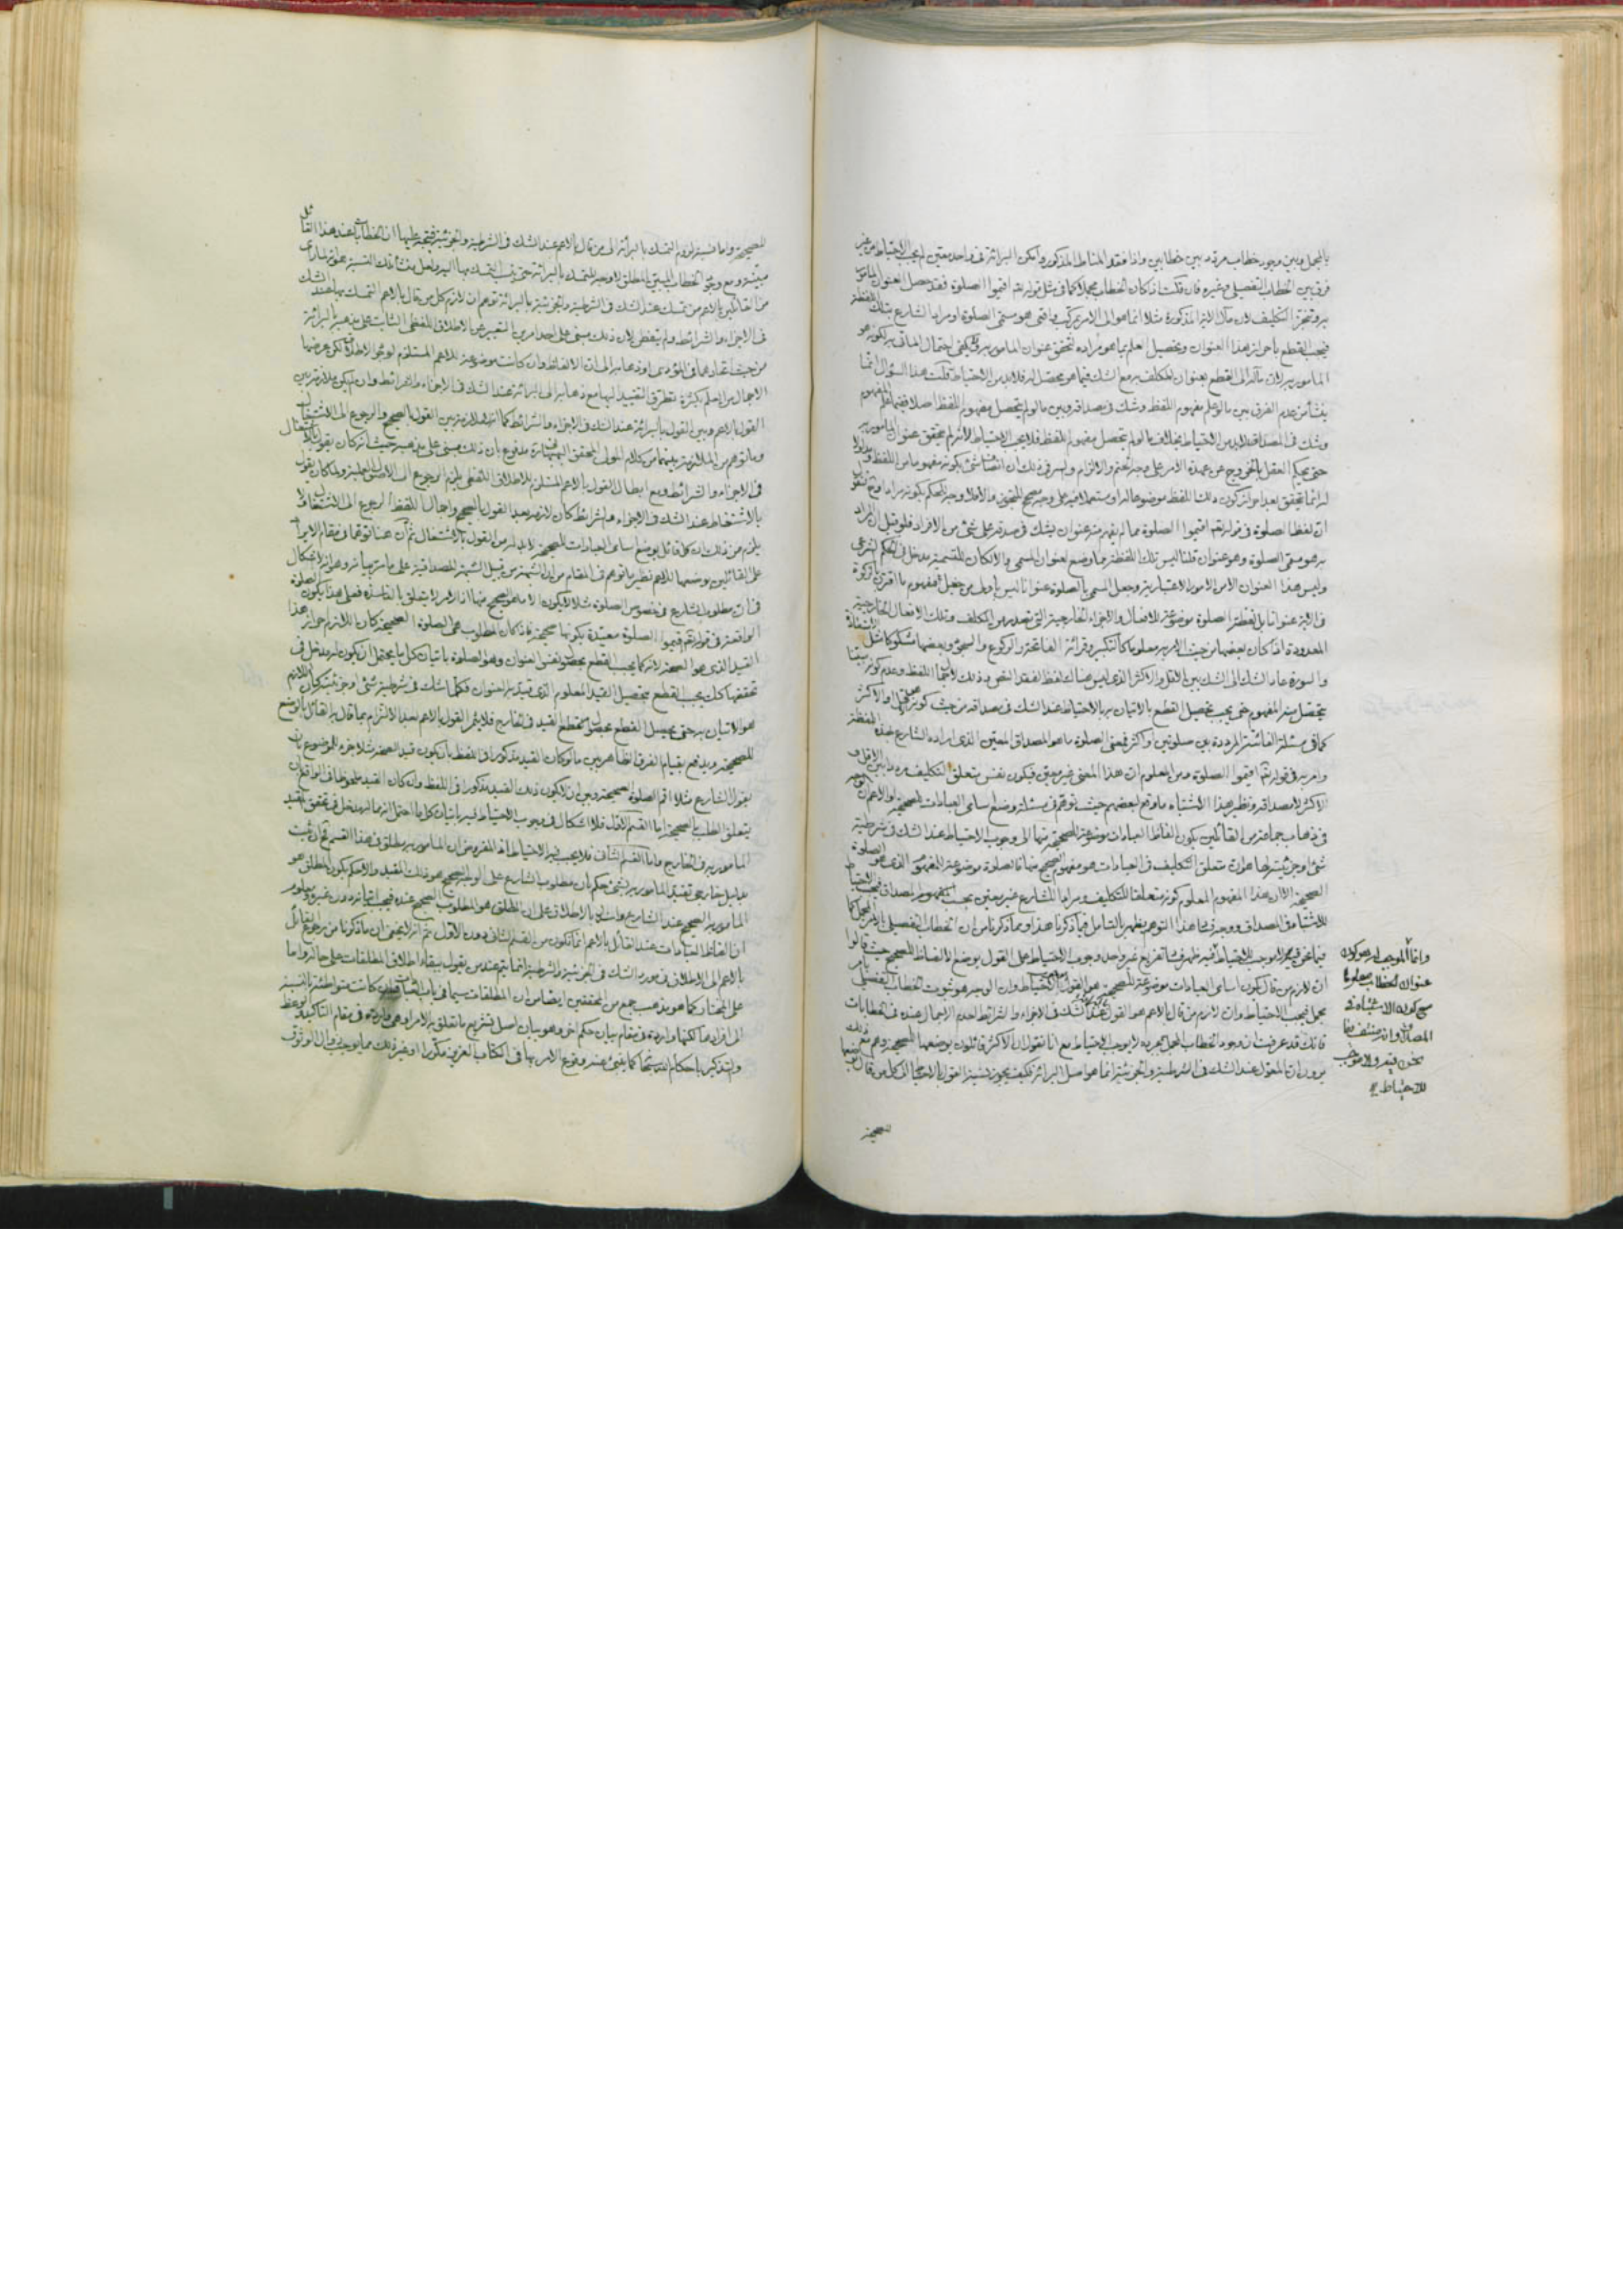 بالمجمل وبين وجود خطاب مردد بين خطابين واذا فقد المناط المذكور وامكن البرائة فى واحد معين لم يجب الاحتياط من غير
فرق بين الخطاب التفصيلى وغيره فان قلت اذا كان الخطاب مجملا كما فى مثل قوله تعم اقيموا الصلوة فقد حصل العنوان المامور
به وتنجز التكليف لان مآل الامر المذكورة مثلا انما هو الى الامر بمركب واقعى هو مسمى الصلوة او مراد الشارع بتلك اللفظة
فيجب القطع باحراز هذا العنوان وتحصيل العلم بما هو مراده لتحقق عنوان المامور به ولا يكفى احتمال الماتى به لكونه هو
المامور به لان مآله الى القطع بعنوان المكلف به مع الشك فيما هو محصل له فلا بد من الاحتياط قلت هذا السؤال انما
ينشأ من عدم الفرق بين ما لو علم مفهوم اللفظ وشك فى مصداقه وبين ما لو لم يتحصل مفهوم للفظ اصلا ففيما علم المفهوم
وشك فى المصداق لا بد من الاحتياط بخلاف ما لو لم يتحصل مفهوم للفظ فلا يجب الاحتياط اذ لم يتحقق عنوان المامور به
حتى يحكم العقل بالخروج عن عهدة الامر على وجه الحتم والالزام والسر فى ذلك ان اتصاف شئ بكونه مفهوما من اللفظ ومدلولا
له انما يتحقق بعد احراز كون ذلك اللفظ موضوعا له او مستعملا فيه على وجه صحيح للتجوز والا فلا وجه للحكم بكونه مرادا وح نقول
ان لفظ الصلوة فى قوله تعم اقيموا الصلوة مما لم يفهم منه عنوان يشك فى صدقه على شئ من الافراد فلو قيل ان المراد
به هو مسمى الصلوة وهو عنوان قلنا ليس تلك اللفظة مما وضع لعنوان المسمى والا لكان للتسمية مدخل فى الحكم الشرعى
وليس هذا العنوان الا من الامور الاعتبارية وجعل المسمى بالصلوة عنوانا ليس باولى من جعل مفهوم ما اقترن بالزكوة
فى الاية عنوانا بل لفظة الصلوة موضوعة للافعال والاجزاء الخارجية التى تصدر من المكلف وتلك الافعال الخارجية
المعدودة اذا كان بعضها من حيث الامر به معلوما كالتكبير وقرائة الفاتحة والركوع والسجود وبعضها مشكوكا مثل
والسورة عاد الشك الى الشك بين الاقل والاكثر الذى ليس هناك لفظ لفقد النص وذلك لاجمال اللفظ وعدم كونه مبينا
يتحصل منه المفهوم حتى يجب تحصيل القطع بالاتيان به بالاحتياط عند الشك فى مصداقه من حيث كونه الاقل والاكثر
كما فى مسئلة الفائتة المرددة بين صلوتين او اكثر فمعنى الصلوة ما هو المصداق المعين الذى اراده الشارع بهذه اللفظة
وامر به فى قوله تعم اقيموا الصلوة ومن المعلوم ان هذا المعنى غير معين فيكون نفس متعلق التكليف مرددا بين الاقل و
الاكثر لا مصداقه ونظير هذا الاشتباه ما وقع لبعضهم حيث توهم فى مسئلة وضع اسامى العبادات للصحيحة والاعم ان الوجه
فى ذهاب جماعة من القائلين بكون الفاظ العبادات موضوعة للصحيحة منها الى وجوب الاحتياط عند الشك فى شرطية
شئ او جزئيته لها هو ان متعلق التكليف فى العبادات هو مفهوم الصحيح منها فالصلوة موضوعة للمفهوم الذى هو الصلوة
الصحيحة الا ان هذا المفهوم المعلوم كونه متعلقا للتكليف ومرادا للشارع غير معين بحسب المصداق فيجب الاحتياط
للاشتباه فى المصداق ووجه فساد هذا التوهم يظهر بالتامل فيما ذكرنا هذا ومما ذكرنا من ان الخطاب التفصيلى بالامر المجمل كما
فيما نحن فيه لا يوجب الاحتياط فيه ظهر فساد تفريع غير واحد وجوب الاحتياط على القول بوضع الالفاظ للصحيح حيث قالوا
ان لازم من قال بكون اسامى العبادات موضوعة للصحيحة هو القول بالاحتياط وان الوجه هو ثبوت الخطاب التفصيلى بامر
مجمل فيجب الاحتياط وان لازم من قال بالاعم هو القول بالبرائة عند الشك فى الاجزاء والشرائط لعدم الاجمال عنده فى الخطابات
فانك قد عرفت ان وجود الخطاب المجمل بمجرده لا يوجب الاحتياط مع انا نقول ان الاكثر قائلون بوضعها للصحيحة وهم مع ذلك
يرون ان المعول عند الشك فى الشرطية والجزئية انما هو اصل البرائة فكيف يجوز نسبة القول بالاحتياط الى كل من قال بوضعها
للصحيحة
وانما الموجب له هو كون
عنوان الخطاب معلوما
مع كون الاشتباه فى
المصداق وانه منتف فيما
نحن فيه ولا موجب
للاحتياط
للصحيحة واما نسبة لزوم التمسك بالبرائة الى من قال بالاعم عند الشك فى الشرطية والجزئية فيتجه عليها ان الخطاب عند هذا القائل
مبينة ومع وجود الخطاب المبين المطلق لا وجه للتمسك بالبرائة حتى ينسب التمسك بها اليه ولعل منشأ تلك النسبة هو انه لما راى
من القائلين بالاعم من تمسك عند الشك فى الشرطية والجزئية بالبرائة توهم ان لازم كل من قال بالاعم التمسك بها عند الشك
فى الاجزاء والشرائط ولم يتفطن لان ذلك مبنى على احد امرين التعبير عن الاطلاق اللفظى الثابت على مذهبه بالبرائة
من حيث اتحادهما فى المؤدى او ذهابه الى ان الالفاظ وان كانت موضوعة للاعم المستلزم لوجود الاطلاق لكن عرضها
الاجمال من العلم بكثرة تطرق التقييد اليها مع ذهابه الى البرائة عند الشك فى الاجزاء والشرائط وان لم يكن ملازمة بين
القول بالاعم وبين القول بالبرائة عند الشك فى الاجزاء والشرائط كما انه لا ملازمة بين القول بالصحيح والرجوع الى الاشتغال
وما توهم من الملازمة بينهما من كلام المولى المحقق البهبهانى ره مدفوع بان ذلك مبنى على مذهبه حيث انه كان يقول بالاشتغال
فى الاجزاء والشرائط ومع ابطال القول بالاعم المستلزم للاطلاق اللفظى يلزم الرجوع الى الاصول العملية ولما كان يقول
بالاشتغال عند الشك فى الاجزاء والشرائط كان لازمه بعد القول بالصحيح واجمال اللفظ الرجوع الى الاشتغال ولا
يلزم من ذلك ان كل قائل بوضع اسامى العبادات للصحيحة لا بد له من القول بالاشتغال ثم ان هنا توهما فى مقام الايراد
على القائلين بوضعها للاعم نظير ما توهم فى المقام من ان الشبهة من قبيل الشبهة المصداقية على ما مر بيانه وهو انه لا اشكال
فى ان مطلوب الشارع فى خصوص الصلوة مثلا لا يكون الا ما هو الصحيح منها اذ الامر لا يتعلق بالفاسدة فعلى هذا يكون الصلوة
الواقعة فى قوله تعم اقيموا الصلوة مقيدة بكونها صحيحة فاذا كان المطلوب هى الصلوة الصحيحة كان اللازم احراز هذا
القيد الذى هو الصحة لانه كما يجب القطع بحصول نفس العنوان وهو الصلوة باتيان كل ما يحتمل ان يكون له مدخل فى
تحققها كك يجب القطع بتحصيل القيد المعلوم الذى قيد به العنوان فكلما شك فى شرطية شئ او جزئيته كان اللازم
هو الاتيان به حتى يحصل القطع بحصول القيد فى الخارج فلا يثمر القول بالاعم بعد الالتزام بما قال به القائل بالوضع
للصحيحة ويدفع بقيام الفرق الظاهر بين ما لو كان القيد مذكورا فى اللفظ بان يكون قيد الصحة مثلا جزء للموضوع بان
يقول الشارع مثلا اقم الصلوة الصحيحة وبين ان لا يكون ذلك القيد مذكورا فى اللفظ وان كان القيد ملحوظا فى الواقع بان
يتعلق الطلب بالصحيحة اما القسم الاول فلا اشكال فى وجوب الاحتياط فيه باتيان كل ما احتمل انه مما له مدخل فى تحقق القيد
المامور به فى الخارج واما القسم الثانى فلا يجب فيه الاحتياط اذ المفروض ان المامور به مطلق فى هذا القسم فان ثبت
بدليل خارجى تقييد المامور به بشئ حكم بان مطلوب الشارع على الوجه الصحيح هو ذلك المقيد والا حكم بكون المطلق هو
المامور به الصحيح عند الشارع
ان الفاظ العبادات عند القائل بالاعم انما تكون من القسم الثانى دون الاول ثم انه لا يخفى ان ما ذكرنا من رجوع القائل
بالاعم الى الاطلاق فى مورد الشك فى الجزئية والشرطية انما يتم عند من يقول ببقاء اطلاق المطلقات على حالها واما
على المختار كما هو مذهب جمع من المحققين ايضا من ان المطلقات سيما فى باب العبادات وان كانت متواطئة بالنسبة
الى افرادها لكنها واردة فى مقام بيان حكم اخر وهو بيان اصل تشريع ما تعلق به الامر او هى واردة فى مقام التاكيد والوعظ
والتذكير باحكام الله تعم كما ينبئ عنه وقوع الامر بها فى الكتاب العزيز مكررا او غير ذلك مما يوجب زوال الوثوق